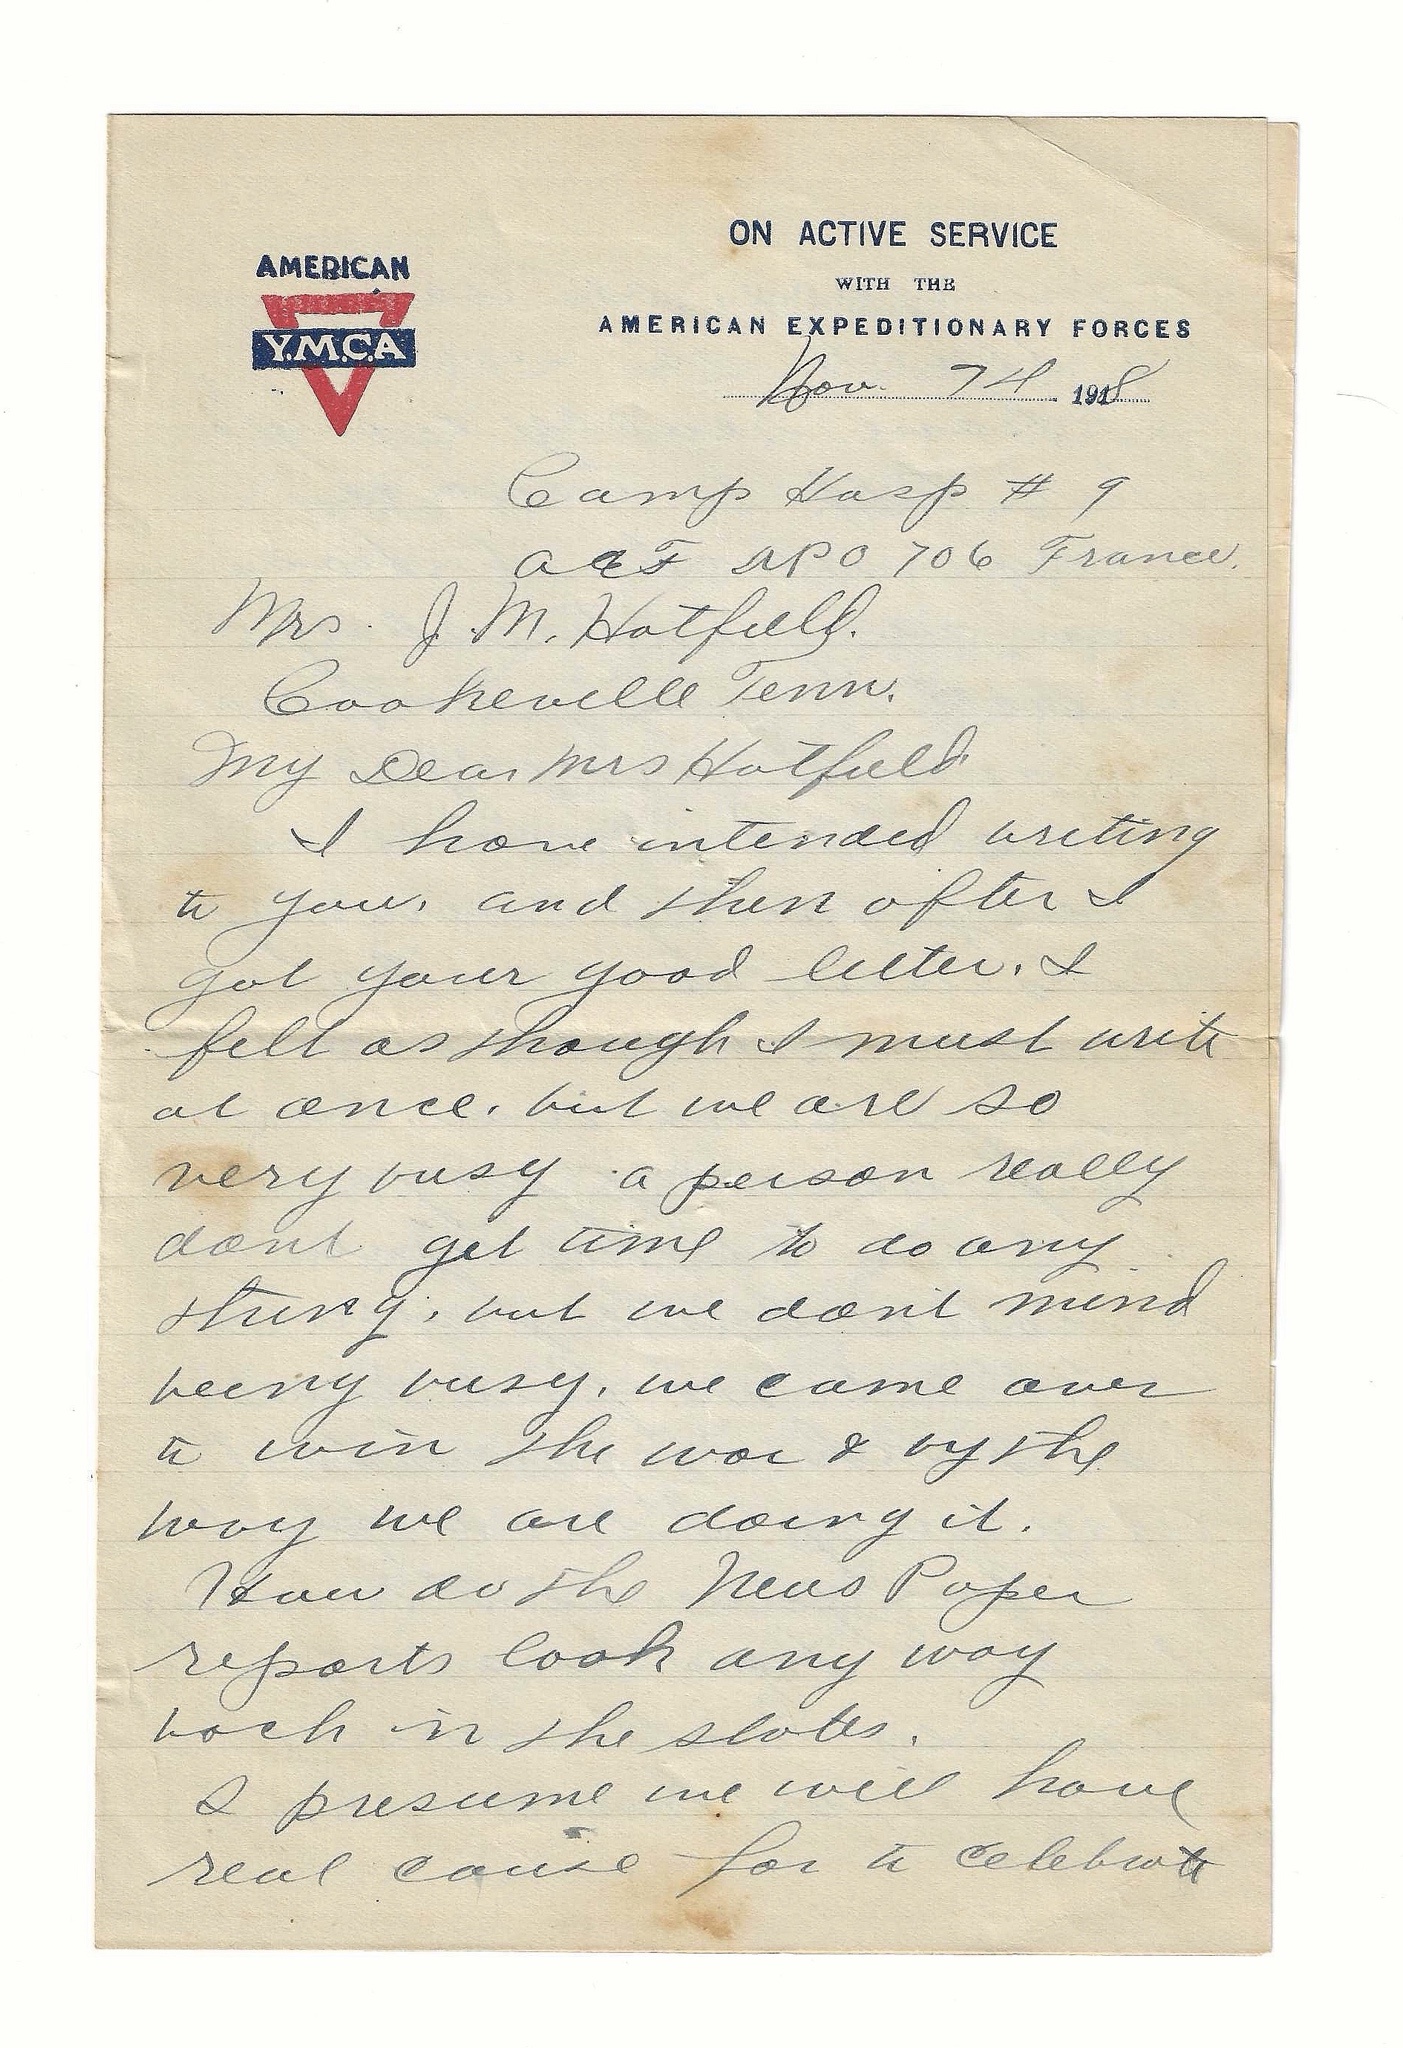 AMERICAN
Y.M.C.A
ON ACTIVE SERVICE
WITH THE
AMERICAN EXPEDITIONARY FORCES
Nov. 7th 1918
Camp Hosp # 9
AEF APO 706 France.
Mrs. J. M. Hatfield.
Cookeville Tenn.
My Dear Mrs Hatfield.
I have intended writing
to you. and then after I
got your good letter. I
felt as though I must write
at once. but we are so
very busy a person really
dont get time to do any
thing. but we don't mind
being busy. we came over
to win the war & by the
way we are doing it.
How do the News Paper
reports look any way
back in the states.
I presume we will have
real cause for to celebrate